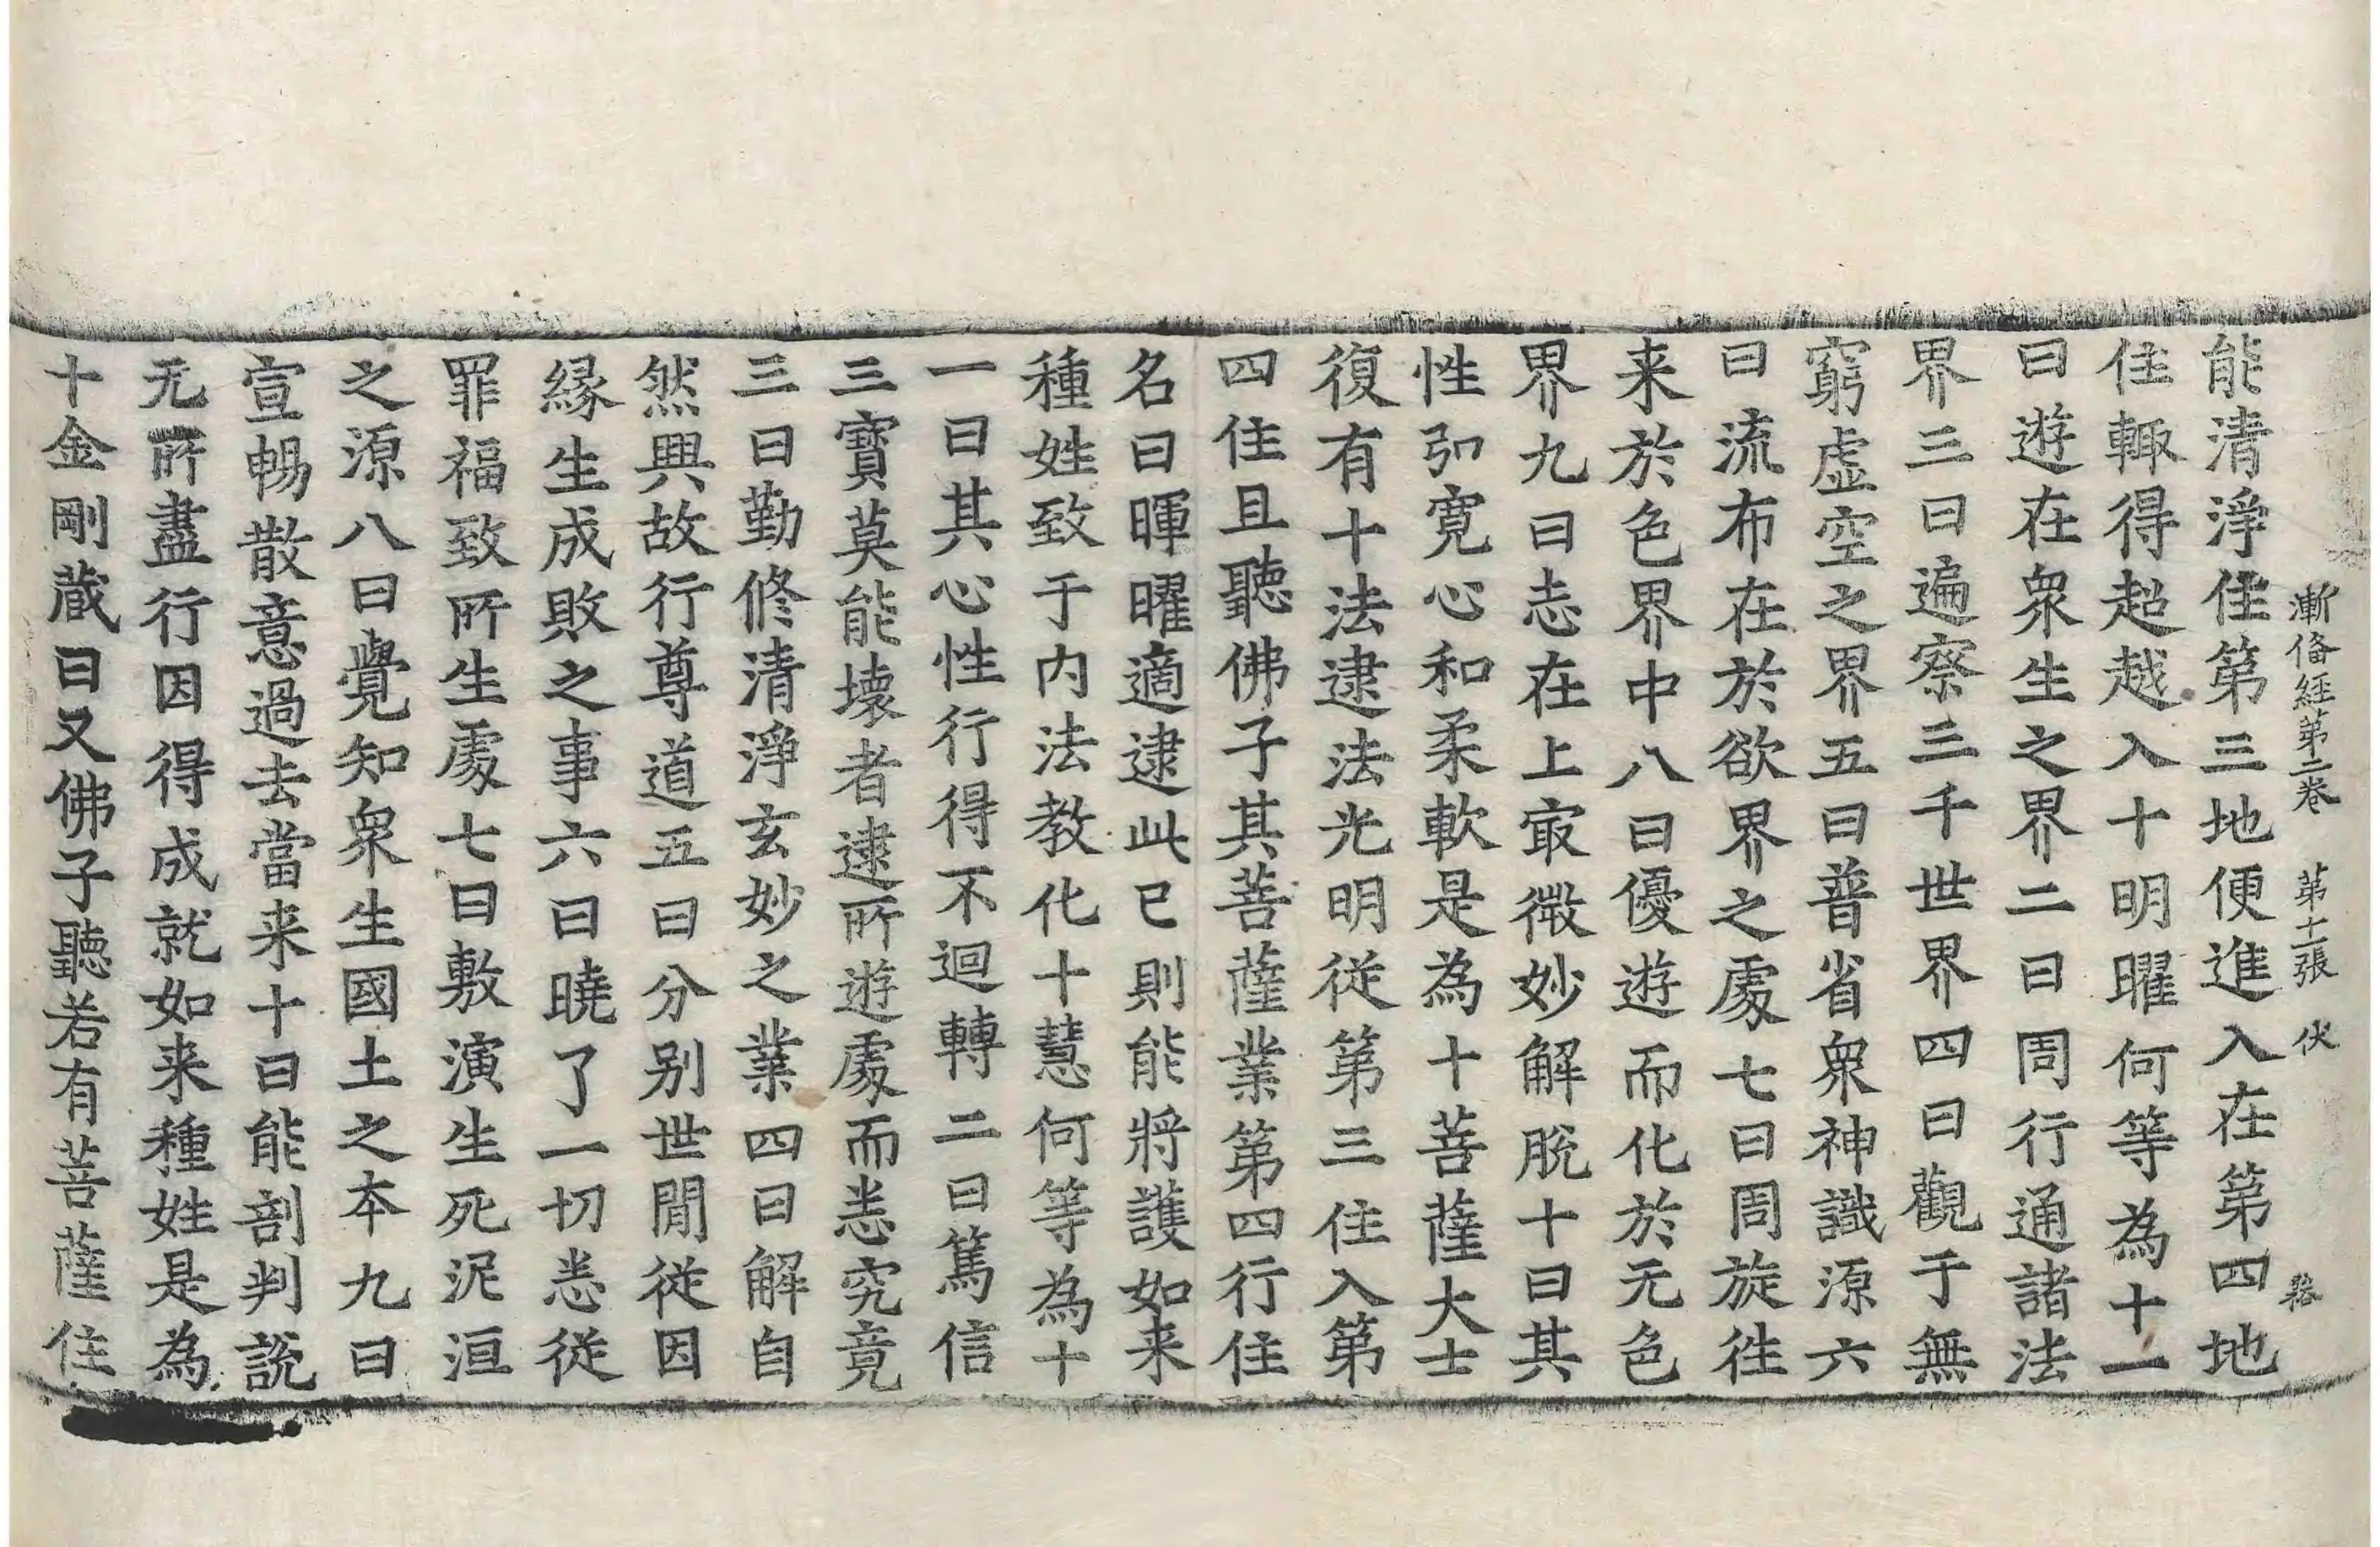 漸俻經第二卷 第十一張 伏
能清淨住第三地便進入在第四地
住輙得超越入十明曜何等為十一
曰遊在衆生之界二曰周行通諸法
界三曰遍察三千世界四曰觀于無
窮虛空之界五曰普省衆神識源六
曰流布在於欲界之處七曰周旋徃
来於色界中八曰優遊而化於无色
界九曰志在上㝡微妙解脫十曰其
性弘寛心和柔軟是為十菩薩大士
復有十法逮法光明從第三住入第
四住且聽佛子其菩薩業第四行住
名曰暉曜適逮此已則能將護如来
種姓致于内法教化十慧何等為十
一曰其心性行得不迴轉二曰篤信
三寶莫能壞者逮所遊處而悉究竟
三曰勤修清淨玄妙之業四曰解自
然興故行尊道五曰分别世閒從因
緣生成敗之事六曰曉了一切悉從
罪福致所生處七曰敷演生死泥洹
之源八曰覺知衆生國土之本九曰
宣暢散意過去當来十曰能剖判説
无所盡行因得成就如来種姓是為
十金剛蔵曰又佛子聽若有菩薩住